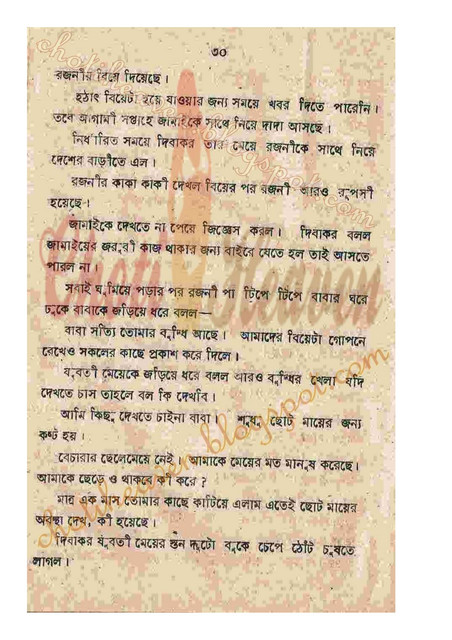 ৩০
রজনীর বিয়ে দিয়েছে।
হঠাৎ বিয়েটা হয়ে যাওয়ার জন্য সময়ে খবর দিতে পারেনি।
তবে আগামী সপ্তাহে জামাইকে সাথে নিয়ে দাদা আসছে।
নির্ধারিত সময়ে দিবাকর তার মেয়ে রজনীকে সাথে নিয়ে
দেশের বাড়ীতে এল।
রজনীর কাকা কাকী দেখল বিয়ের পর রজনী আরও রূপসী
হয়েছে।
জামাইকে দেখতে না পেয়ে জিজ্ঞেস করল। দিবাকর বলল
জামাইয়ের জরুরী কাজ থাকার জন্য বাইরে যেতে হল তাই আসতে
পারল না।
সবাই ঘুমিয়ে পড়ার পর রজনী পা টিপে টিপে বাবার ঘরে
ঢুকে বাবাকে জড়িয়ে ধরে বলল—
বাবা সত্যি তোমার বুদ্ধি আছে। আমাদের বিয়েটা গোপনে
রেখেও সকলের কাছে প্রকাশ করে দিলে।
যুবতী মেয়েকে জড়িয়ে ধরে বলল আরও বুদ্ধির খেলা যদি
দেখতে চাস তাহলে বল কি দেখবি।
আমি কিছু দেখতে চাইনা বাবা। শুধু ছোট মায়ের জন্য
কষ্ট হয়।
বেচারার ছেলেমেয়ে নেই। আমাকে মেয়ের মত মানুষ করেছে।
আমাকে ছেড়ে ও থাকবে কী করে?
মাত্র এক মাস তোমার কাছে কাটিয়ে এলাম এতেই ছোট মায়ের
অবস্থা দেখ, কী হয়েছে।
দিবাকর যুবতী মেয়ের স্তন দুটো বুকে চেপে ঠোঁট চুষতে
লাগল।
Choti Heaven
chotiheaven.blogspot.com